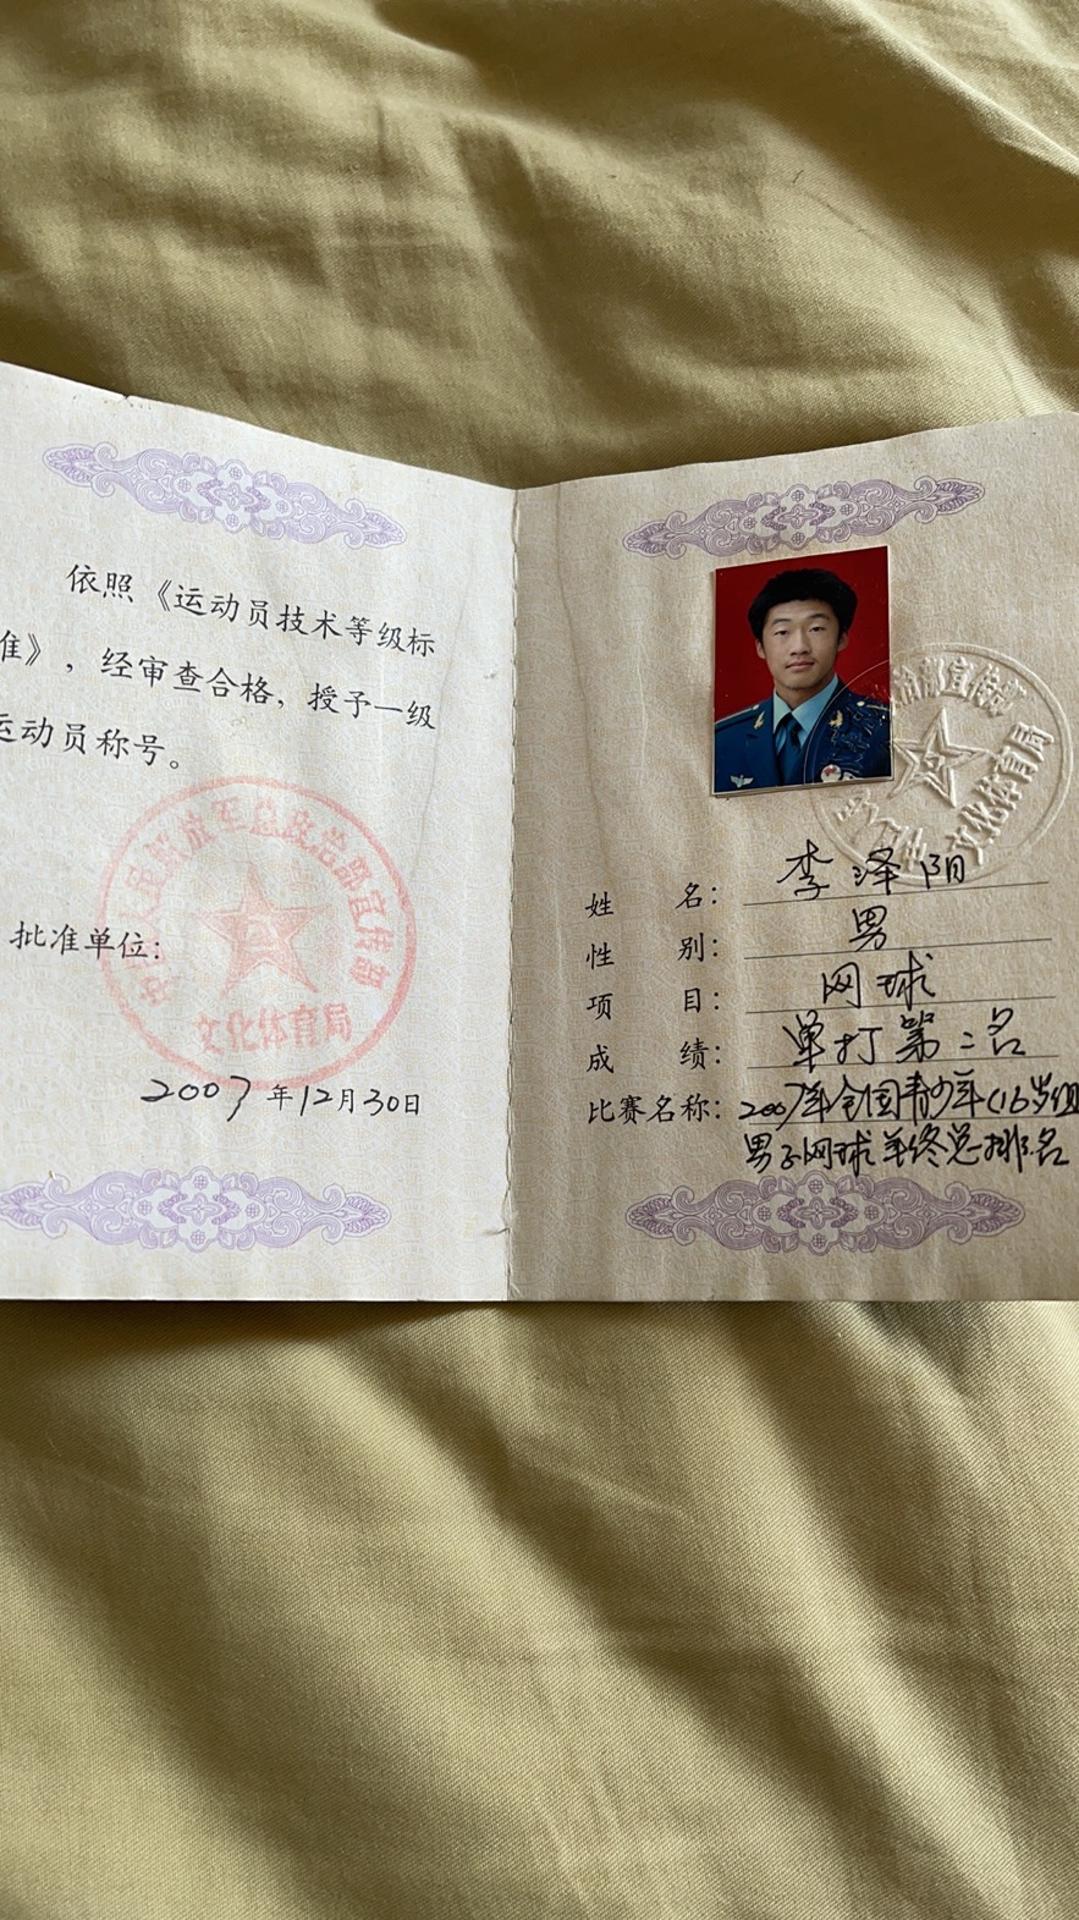 依照《运动员技术等级标
准》，经审查合格，授予一级
运动员称号。
批准单位：
人民解放军总政治部宣传部
文化体育局
2007年12月30日
宣传部
文化体育局
姓 名：李泽阳
性 别：男
项 目：网球
成 绩：单打第二名
比赛名称：2007年全国青少年(16岁组
男子网球年终总排名